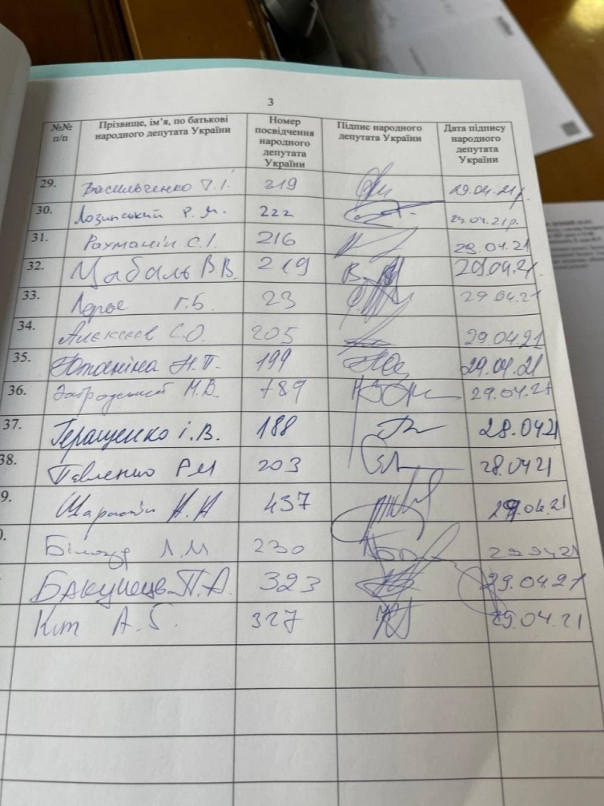 3
№№ п/п Прізвище, ім'я, по батькові народного депутата України Номер посвідчення народного депутата України Підпис народного депутата України Дата підпису народного депутата України
29. Васильченко Г.І. 219 29.04.21р.
30. Лозинський Р.М. 222 29.04.21р.
31. Рахманін С.І. 216 29.04.21
32. Цабаль В.В. 219 29.04.21
33. Г.Б. 23 29.04.21
34. Алєксєєв С.О. 205 29.04.21
35. Юрчишин 199 29.04.21
36. Забродський М.В. 789 29.04.21
37. Геращенко І.В. 188 28.0421
38. Павленко Р.М 203 28.0421
9. 437 29.04.21
Білозір Л.М 230 290421
Бакунець П.А. 323 29.04.21
Кіт А.Б. 327 29.04.21